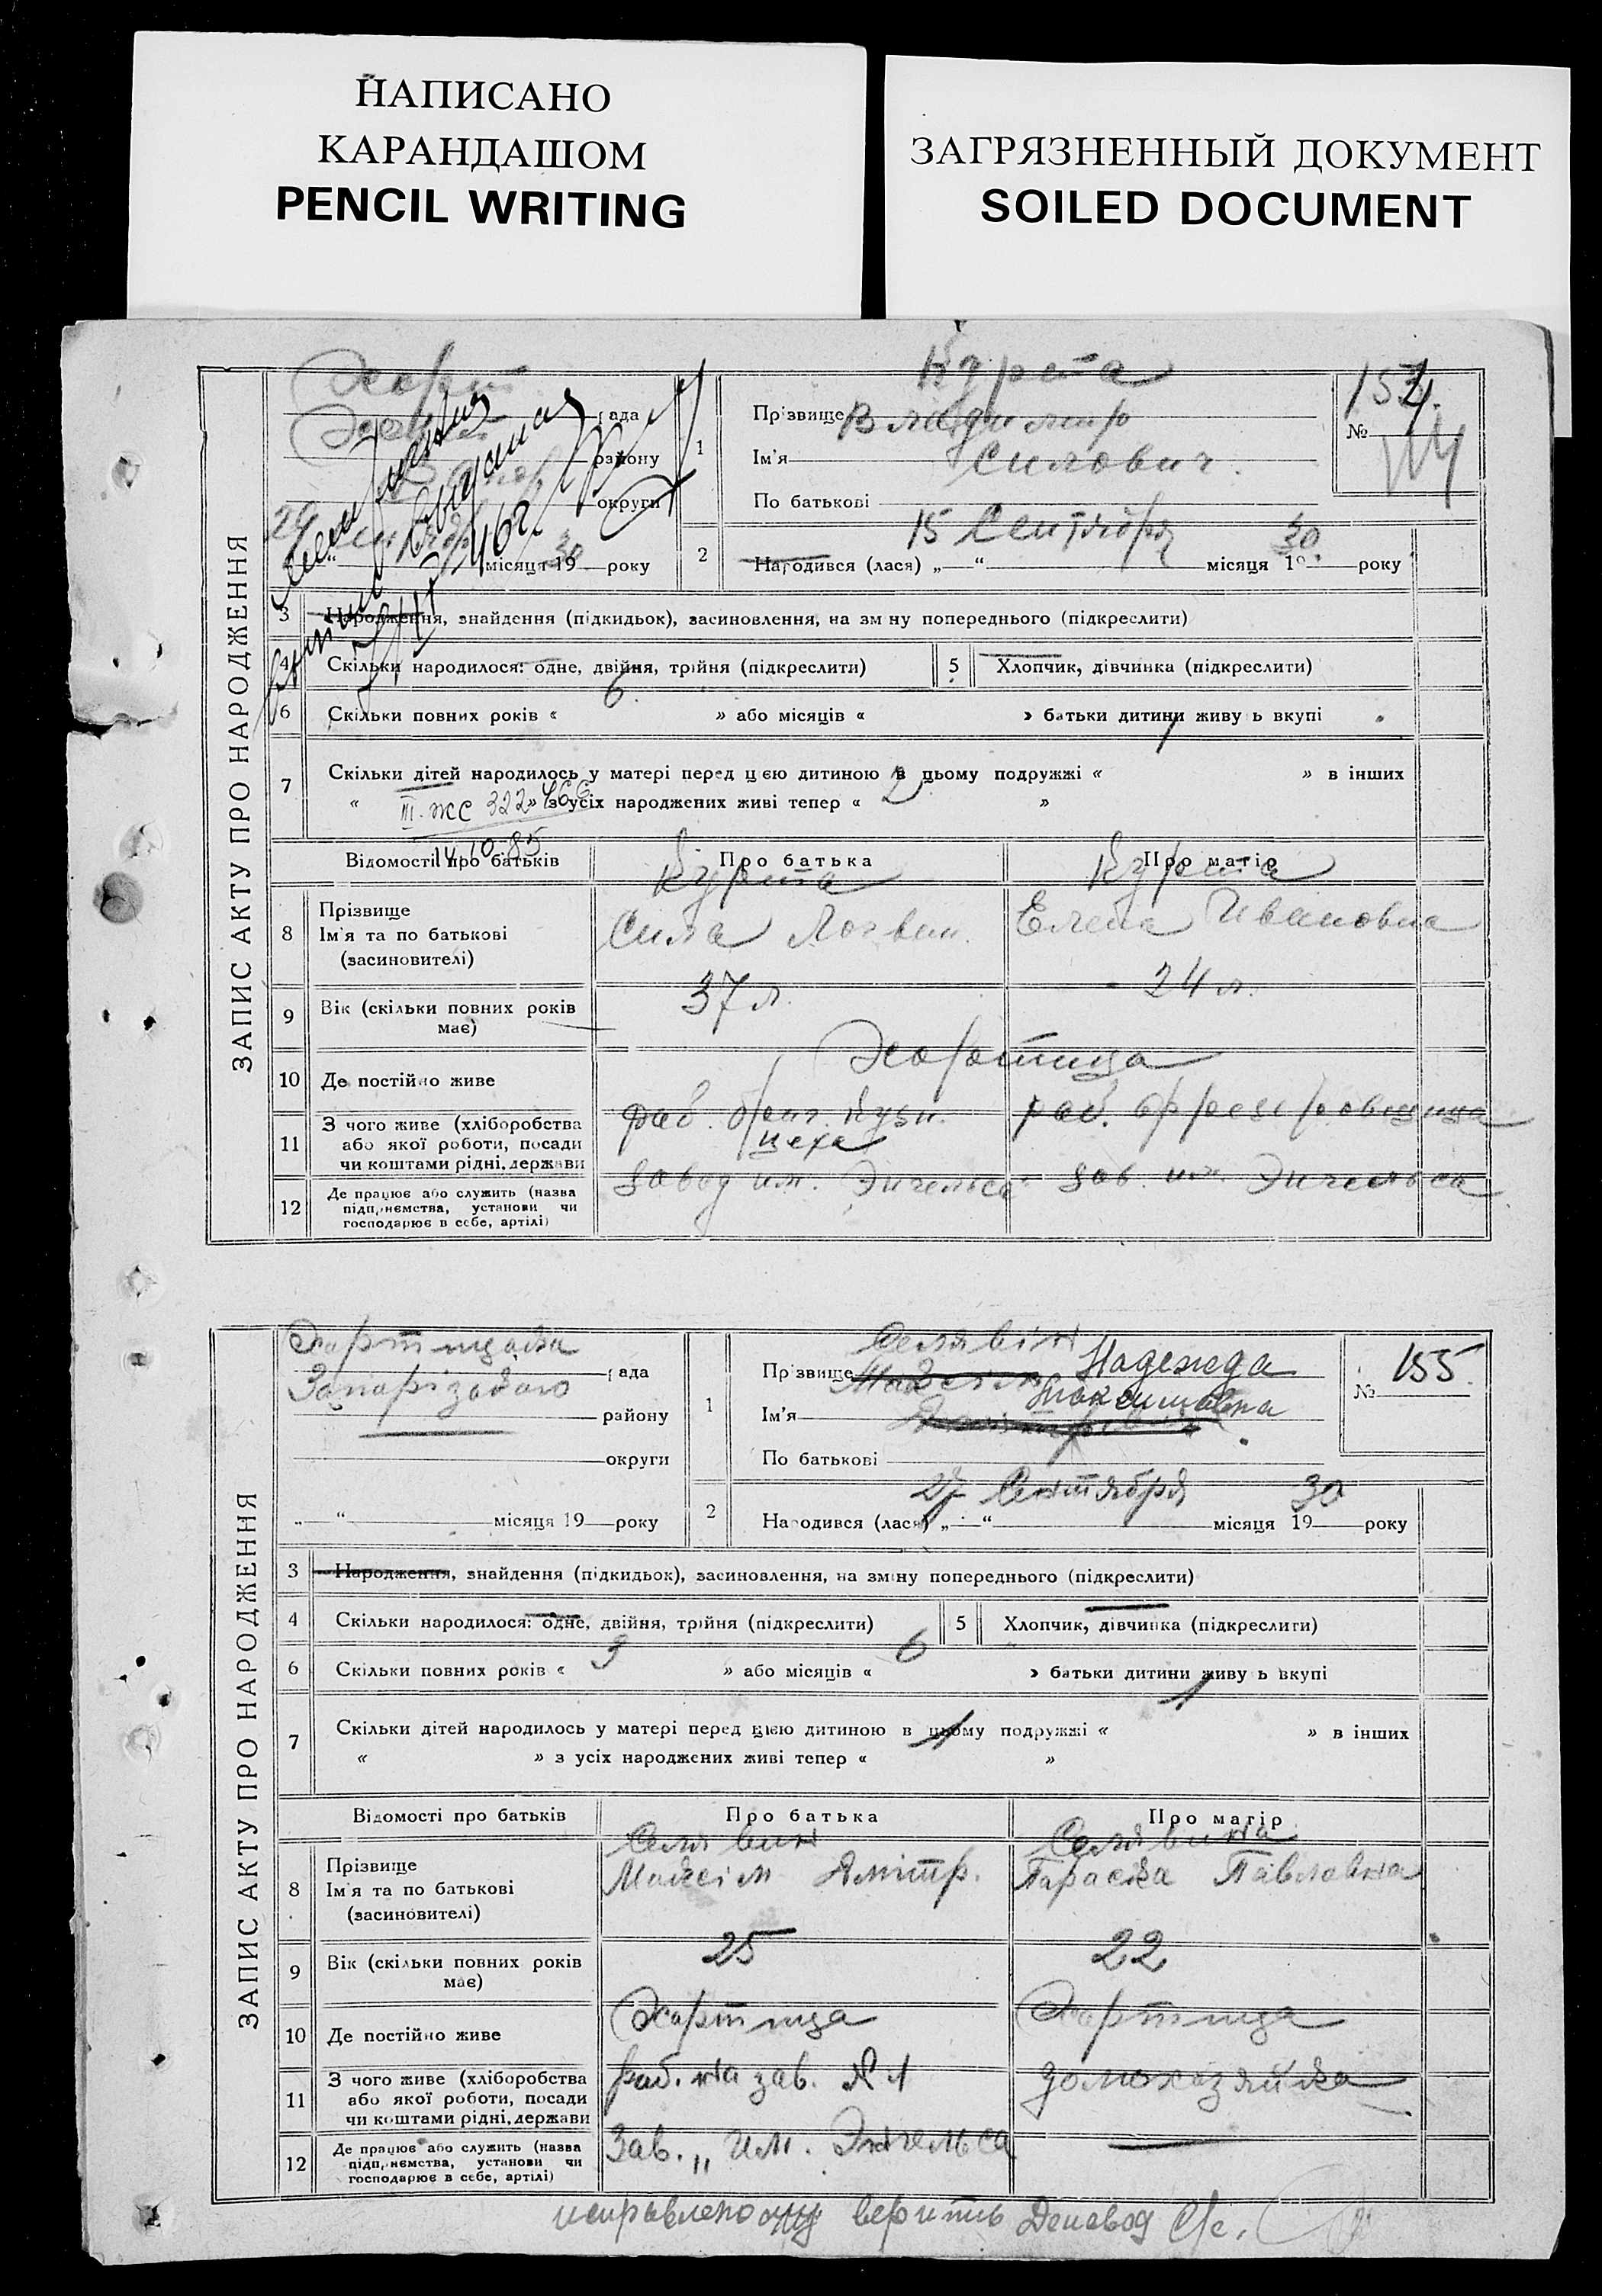 НАПИСАНО
КАРАНДАШОМ
PENCIL WRITING
ЗАГРЯЗНЕННЫЙ ДОКУМЕНТ
SOILED DOCUMENT
ЗАПИС АКТУ ПРО НАРОДЖЕННЯ
рада
району
округи
29
місяця 1930 року
1
Прізвище Курта
Ім'я Владимир
По батькові Силович.
№ 154.
2
Народився (лася) „15“ Сентября місяця 1930. року
3 Народження, знайдення (підкидьок), засиновлення, на зміну попереднього (підкреслити)
4 Скільки народилося: одне, двійня, трійня (підкреслити)
5 Хлопчик, дівчинка (підкреслити)
6 Скільки повних років « 6. » або місяців « » батьки дитини живуть вкупі
7 Скільки дітей народилось у матері перед цією дитиною в цьому подружжі « 1 » в інших
« » з усіх народжених живі тепер « 2 »
III-ЖС 322466
14.10.85
Відомості про батьків
Про батька
Про матір
8 Прізвище
Ім'я та по батькові
(засиновителі)
Курта
Сила Логвин.
Курта
Елена Ивановна
9 Вік (скільки повних років має)
37 л.
24 л.
10 Де постійно живе
Хортица
11 З чого живе (хліборобства або якої роботи, посади чи коштами рідні, держави
раб. бриг. кузн. цеха
раб. фрезеровщица
12 Де працює або служить (назва підприємства, установи чи господарює в себе, артілі)
завод им. Энгельса
зав. им. Энгельса
ЗАПИС АКТУ ПРО НАРОДЖЕННЯ
Хортицька рада
Запорізького району
округи
„ “ місяця 19 року
1
Прізвище Селявін Надежда
Ім'я Максим Максимовна
По батькові
№ 155
2
Народився (лася) „27“ Сентября місяця 1930 року
3 Народження, знайдення (підкидьок), засиновлення, на зміну попереднього (підкреслити)
4 Скільки народилося: одне, двійня, трійня (підкреслити)
5 Хлопчик, дівчинка (підкреслити)
6 Скільки повних років « 3 » або місяців « 6 » батьки дитини живуть вкупі
7 Скільки дітей народилось у матері перед цією дитиною в цьому подружжі « 1 » в інших
« » з усіх народжених живі тепер « 1 »
Відомості про батьків
Про батька
Про матір
8 Прізвище
Ім'я та по батькові
(засиновителі)
Селявин
Максім Дмітр.
Селявина
Параска Павловна
9 Вік (скільки повних років має)
25
22
10 Де постійно живе
Хортица
Хортица
11 З чого живе (хліборобства або якої роботи, посади чи коштами рідні, держави
раб. на зав. № 1
домохазяйка
12 Де працює або служить (назва підприємства, установи чи господарює в себе, артілі)
Зав. „ Им. Энгельса
исправленому верить